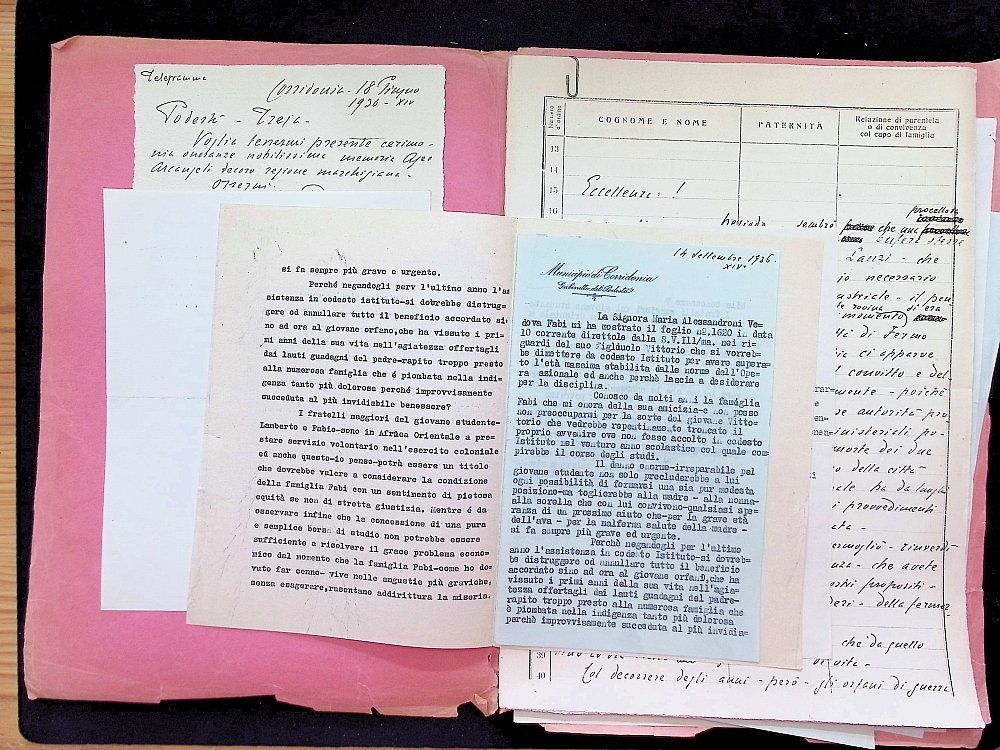 Telegramma
Corridonia - 18 Giugno
1936 - XIV
Podestà - Treja -
Voglia tenermi presente cerimo-
nia onoranze nobilissima memoria
Arcangeli decoro regione marchigiana -
si fa sempre più grave e urgento.
Perché negandogli perv l'ultimo anno l'as
sistenza in codesto istituto-si dotrebbe distrug-
gere od annullare tutto il beneficio accordato si
no ad ora al giovane orfano,che ha vissuto i pri-
mi anni della sua vita nell'agiatezza offertagli
dai lauti guadagni del padre-rapito troppo presto
alla numerosa famiglia che é piombata nella indi-
genza tanto più dolorosa perché improvvisamento
succeduta al più invidiabile benessere?
I fratelli maggiori del giovane studente-
Lamberto e Fabio-sono in Afrûca Orientale a pre-
stare servizio volontario nell'esercito coloniale
ed anche questo-io penso-potrà essere un titolo
che dovrebbe valere a considerare la condizione
della famiglia Fabi con un sentimento di pietosa
equità se non di stretta giustizia. Mentre é da
osservare infine che la concessione di una pura
e semplice borsa di studio non potrebbe essere
sufficiente a risolvere il grace problema econo-
mico dal momento che la famiglia Fabi-come ho do-
vuto far cenno- vive nelle angustie più graviche,
senza esagerare,rasentano addirittura la miseria.
14 settembre 1936.
XIV°
Municipio di Corridonia
Gabinetto del Podestà
La Signora Maria Alessandroni Ve=
dova Fabi mi ha mostrato il foglio n°.1620 in data
10 corrente direttole dalla S.V.Ill/ma. nei ri=
guardi del suo figlduolo Vittorio che si vorreb=
be dimettere da codesto Istituto per avere supera=
to l'età massima stabilita dalle norme dell'Ope=
ra azionale ed anche perché lascia a desiderare
per la disciplina.
Conosco da molti anni la famôglia
Fabi che mi onora della sua amicizia-e non posso
non preoccuparmi per la sorte del giovane Vitto=
torio che vedrebbe repentinamente troncato il
proprio avvenire ove non fosse accolto in codesto
Istituto nel venturo anno scolastico col quale com
pirebbe il corso degli studi.
Il danno enorme-irreparabile pel
giovane studente non solo precluderebbe a lui
ogni possibilità di formarsi una sia pur modesta
posizione-ma toglierebbe alla madre - alla nonna-
alla sorella che con lui convivono-qualsiasi spe=
ranza di un prossimo aiuto che-per la grave età
dell'ava - per la malferma salute della madre -
si fa sempre più grave ed urgente.
Perchè negandogli per l'ultimo
anno l'assistenza in codesto Istituto-si dovreb=
be distruggere od annullare tutto il beneficio
accordato sino ad ora al giovane orfano,che ha
vissuto i primi anni della sua vita nell'agia=
tezza offertagli dai lauti guadagni del padre-
rapito troppo presto alla numerosa famiglia che
è piombata nella indigenza tanto più dolorosa
perchè improvvisamente succeduta al più invidia=
Numero d'ordine
COGNOME E NOME
PATERNITÀ
Relazione di parentela
o di convivenza
col capo di famiglia
13
14
15
16
Eccellenze !
procellosa
sembrò che una
Lanzi - che
io necessario
ustriale - il pen
momento
di Fermo
ia ci apparve
convitto e del
mente - poiché
se autorità pro
inisteriali po-
morte dei due
o della città
ha da lunghi
i provvedimenti
cta -
nza - che avete
propositi -
deri - della fermez
che da quello
vita -
39
40
Col decorrere degli anni - però - gli orfani di guerra